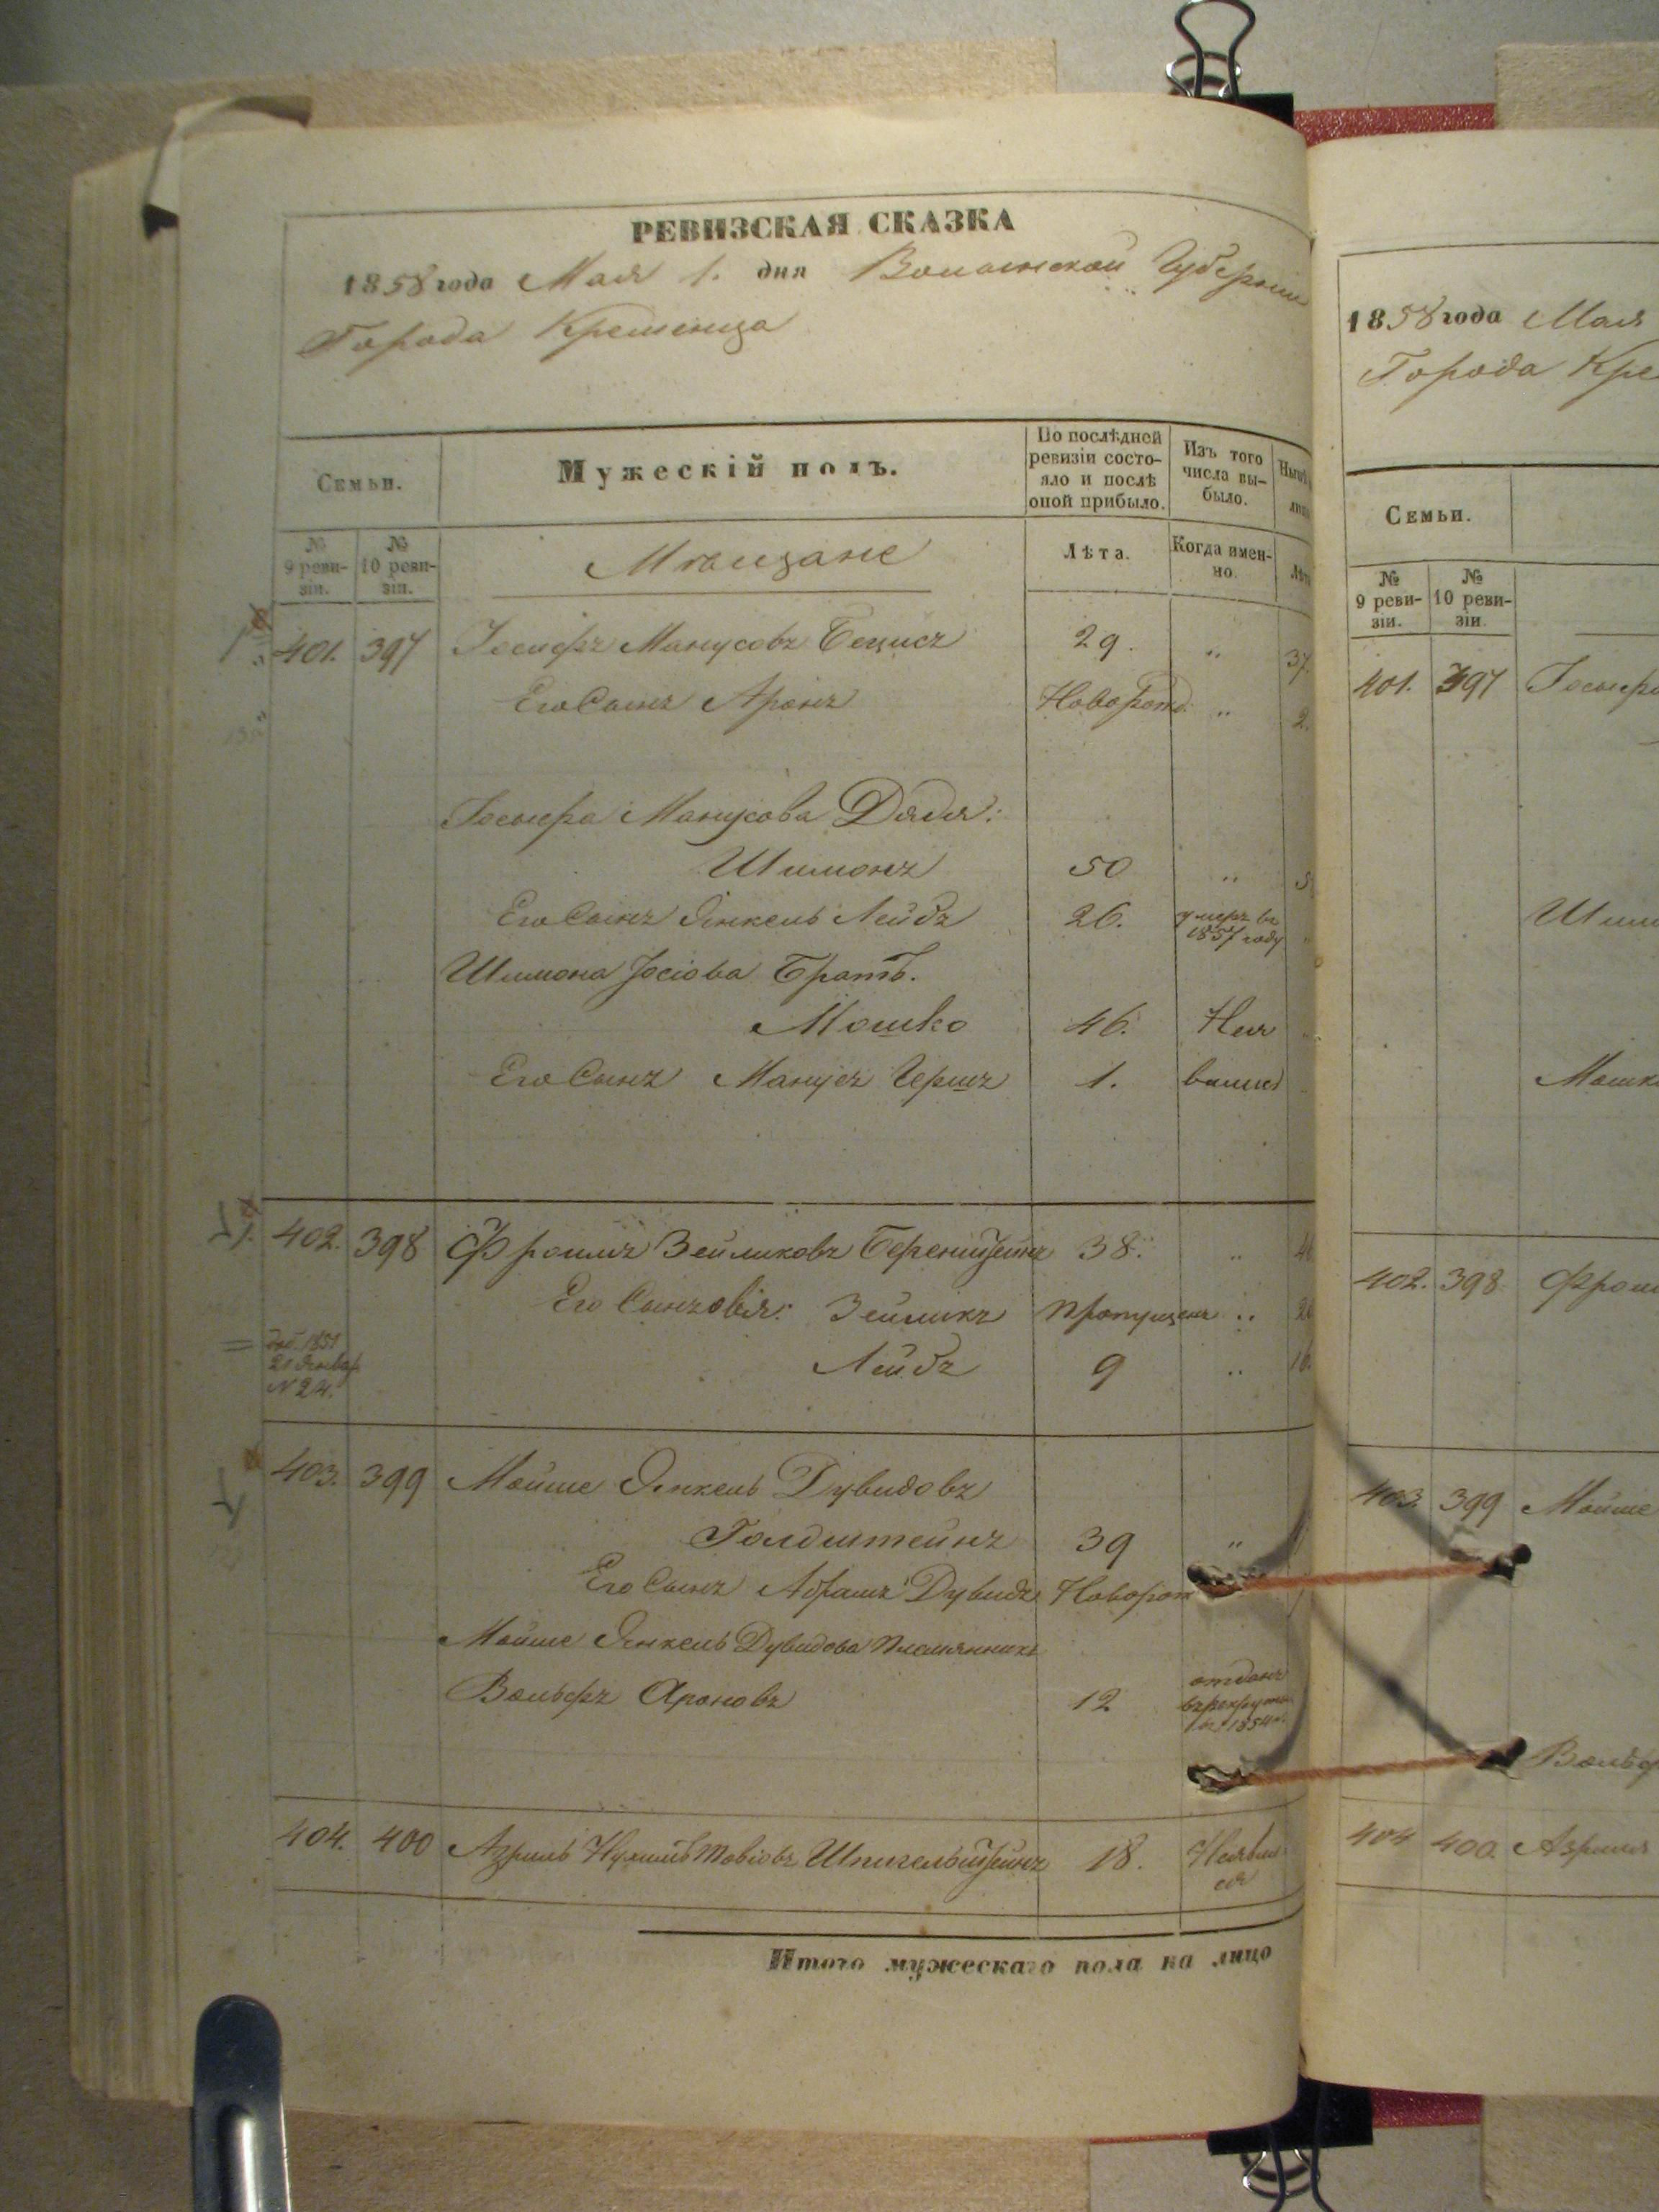 РЕВИЗСКАЯ СКАЗКА
1858 года Мая 1. дня Волынской Губернии
Города Кременца
Семьи.
Мужескій полъ.
По послѣдней ревизіи состо-
яло и послѣ
оной прибыло.
Изъ того
числа вы-
было.
№
9 реви-
зіи.
№
10 реви-
зіи.
Мѣщане
Лѣта.
Когда имен-
но.
401. 397 Іосифъ Манусовъ Бецисъ 29. „ 37.
Его Сынъ Аронъ Новорожд. „ 2.
Іосифа Манусова Дядя:
Шимонъ 50 „
Его Сынъ Янкель Лейбъ 26. умеръ въ
1857 году
Шимона Іосіова Братъ.
Мошко 46. Нея
Его Сынъ Манусъ Гершъ 1. вился
402. 398 Фроимъ Зейликовъ Беренштейнъ 38. „
Его Сыновія: Зейликъ пропущенъ „
Лейбъ 9 „
1851
21 Январ
N 24.
403. 399 Мойше Янкель Дувидовъ
Голдштейнъ 39 „
Его Сынъ Абрамъ Дувидъ Новорож
Мойше Янкель Дувидова племянникъ
Вольфъ Ароновъ 12 отданъ
въ рекруты
въ 1854 г.
404. 400 Азриль Нухимъ Товіовъ Шпигельштейнъ 18. Неявил
ся
Итого мужескаго пола на лицо
1858 года Мая
Города Кре
Семьи.
№
9 реви-
зіи.
№
10 реви-
зіи.
401. 397 Іосифа
Шим
Мошк
402. 398 Фрои
403. 399 Мойше
Вольф
404 400. Азриля